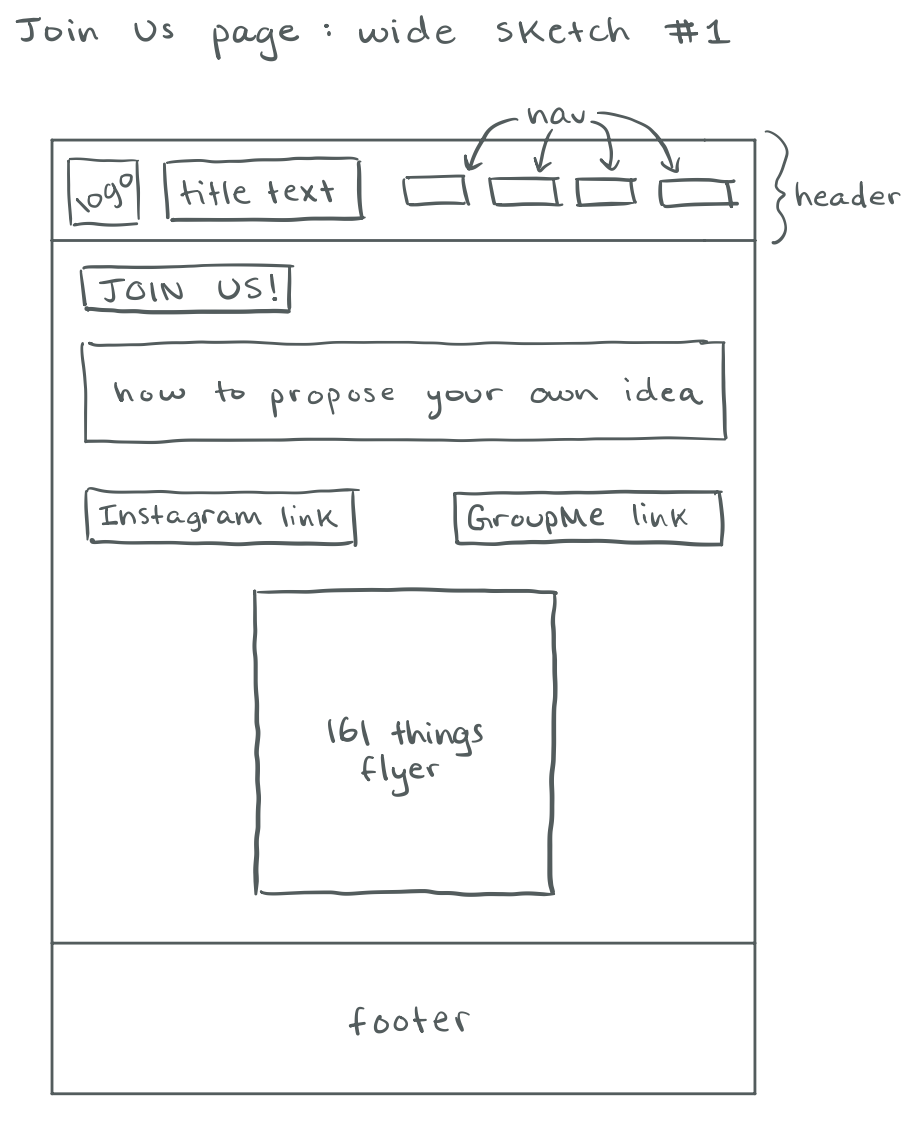 Join Us page: wide sketch #1
nav
logo
title text
header
JOIN US!
how to propose your own idea
Instagram link
GroupMe link
161 things
flyer
footer